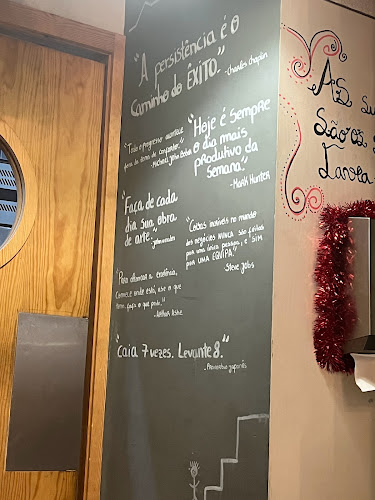 "A persistência é o
Caminho do ÊXITO."
- Charles Chaplin
"Todo o progresso acontece
fora da zona de conforto."
- Michael John Bobak
"Hoje é sempre
o dia mais
produtivo da
semana."
- Mark Hunter
"Faça de cada
dia sua obra
de arte."
"Coisas incríveis no mundo
dos negócios NUNCA são feitas
por uma única pessoa, e SIM
por UMA EQUIPA."
Steve Jobs
"Para alcançar a excelência,
comece onde está, use o que
tem, faça o que pode."
- Arthur Ashe
"Caia 7 vezes. Levante 8."
- Provérbio japonês
As su
São as